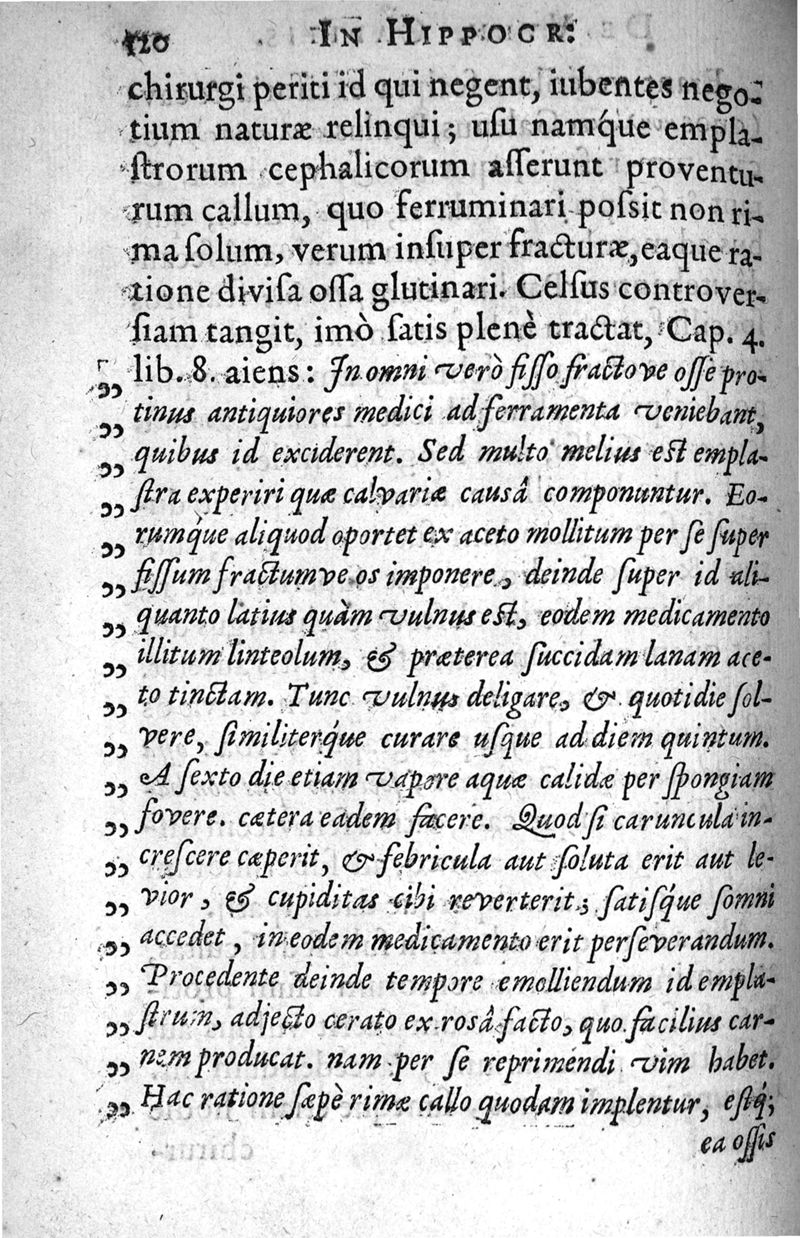 120 IN HIPPOCR:
chirurgi periti id qui negent, iubentes nego-
tium naturæ relinqui; uſu namq́ue empla-
ſtrorum cephalicorum aſſerunt proventu-
rum callum, quo ferruminari poſsit non ri-
ma ſolum, verum inſuper fracturæ, eaque ra-
tione diviſa oſſa glutinari. Celſus controver-
ſiam tangit, imò ſatis plenè tractat, Cap. 4.
lib. 8. aiens: In omni verò fiſſo fractove oſſe pro-
„ tinus antiquiores medici ad ferramenta veniebant,
„ quibus id exciderent. Sed multo melius eſt empla-
„ ſtra experiri quæ calvariæ causâ componuntur. Eo-
„ rumq́ue aliquod oportet ex aceto mollitum per ſe ſuper
„ fiſſum fractumve os imponere, deinde ſuper id ali-
„ quanto latius quàm vulnus eſt, eodem medicamento
„ illitum linteolum, & præterea ſuccidam lanam ace-
„ to tinctam. Tunc vulnus deligare, & quotidie ſol-
„ vere, ſimiliterq́ue curare uſque ad diem quintum.
„ A ſexto die etiam vapore aquæ calidæ per ſpongiam
„ fovere. cætera eadem facere. Quod ſi caruncula in-
„ creſcere cæperit, & febricula aut ſoluta erit aut le-
„ vior, & cupiditas cibi reverterit, ſatiſq́ue ſomni
„ accedet, in eodem medicamento erit perſeverandum.
„ Procedente deinde tempore emolliendum id empla-
„ ſtrum, adjecto cerato ex rosâ facto, quo facilius car-
„ nem producat. nam per ſe reprimendi vim habet.
„ Hac ratione ſæpè rimæ callo quodam implentur, eſtq́;
ea oſſis